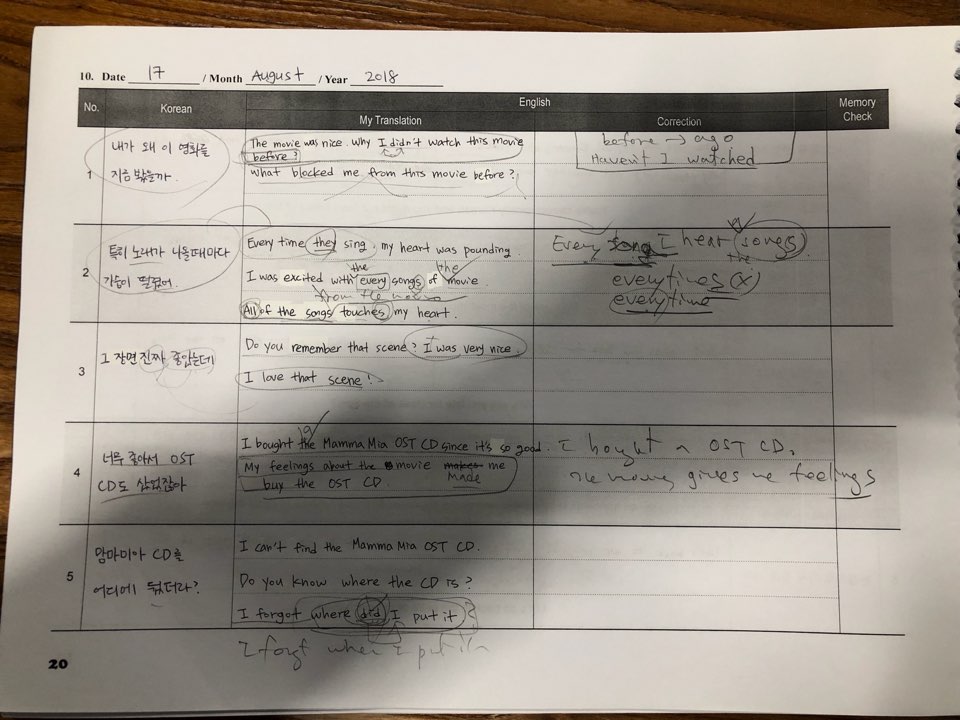 10. Date 17 / Month August / Year 2018
No. Korean English Memory Check
My Translation Correction
1
내가 왜 이 영화를
지금 봤을까.
The movie was nice. Why I didn't watch this movie
before?
What blocked me from this movie before?
before → ago
Haven't I watched
2
특히 노래가 나올때마다
가슴이 떨렸어.
Every time they sing, my heart was pounding.
the the
I was excited with every songs of movie.
from the movie
All of the songs touches my heart.
Every song I hear songs
the
everytimes (x)
everytime
3
그 장면 진짜 좋았는데
Do you remember that scene? I was very nice.
I love that scene!
4
너무 좋아서 OST
CD도 샀었잖아
I bought the Mamma Mia OST CD since it's so good.
My feelings about the movie makes me
made
buy the OST CD.
I bought a OST CD.
gives me feelings
5
맘마미아 CD를
어디에 뒀더라?
I can't find the Mamma Mia OST CD.
Do you know where the CD is?
I forgot where did I put it
I forgt where I put it
20